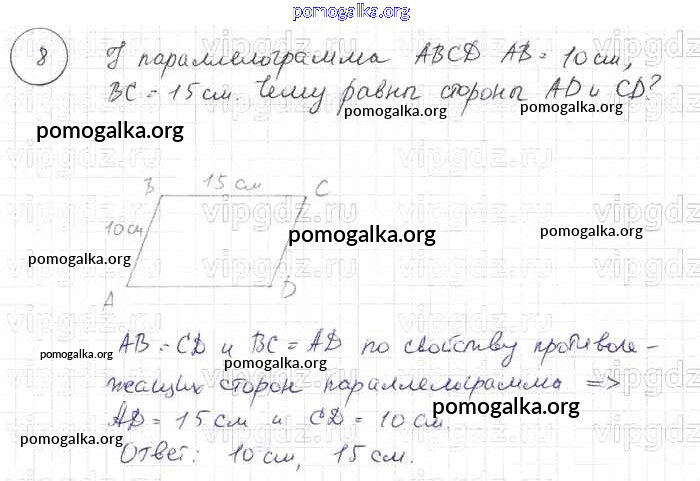 pomogalka.org
8 У параллелограмма ABCD AB = 10 см,
BC = 15 см. Чему равны стороны AD и CD?
pomogalka.org
pomogalka.org
pomogalka.org
vipgdz.ru
B 15 см C
10 см
pomogalka.org
pomogalka.org
pomogalka.org
A D
AB = CD и BC = AD по свойству противоле-
pomogalka.org
pomogalka.org
жащих сторон параллелограмма =>
AD = 15 см и CD = 10 см.
pomogalka.org
pomogalka.org
Ответ: 10 см, 15 см.
pomogalka.org